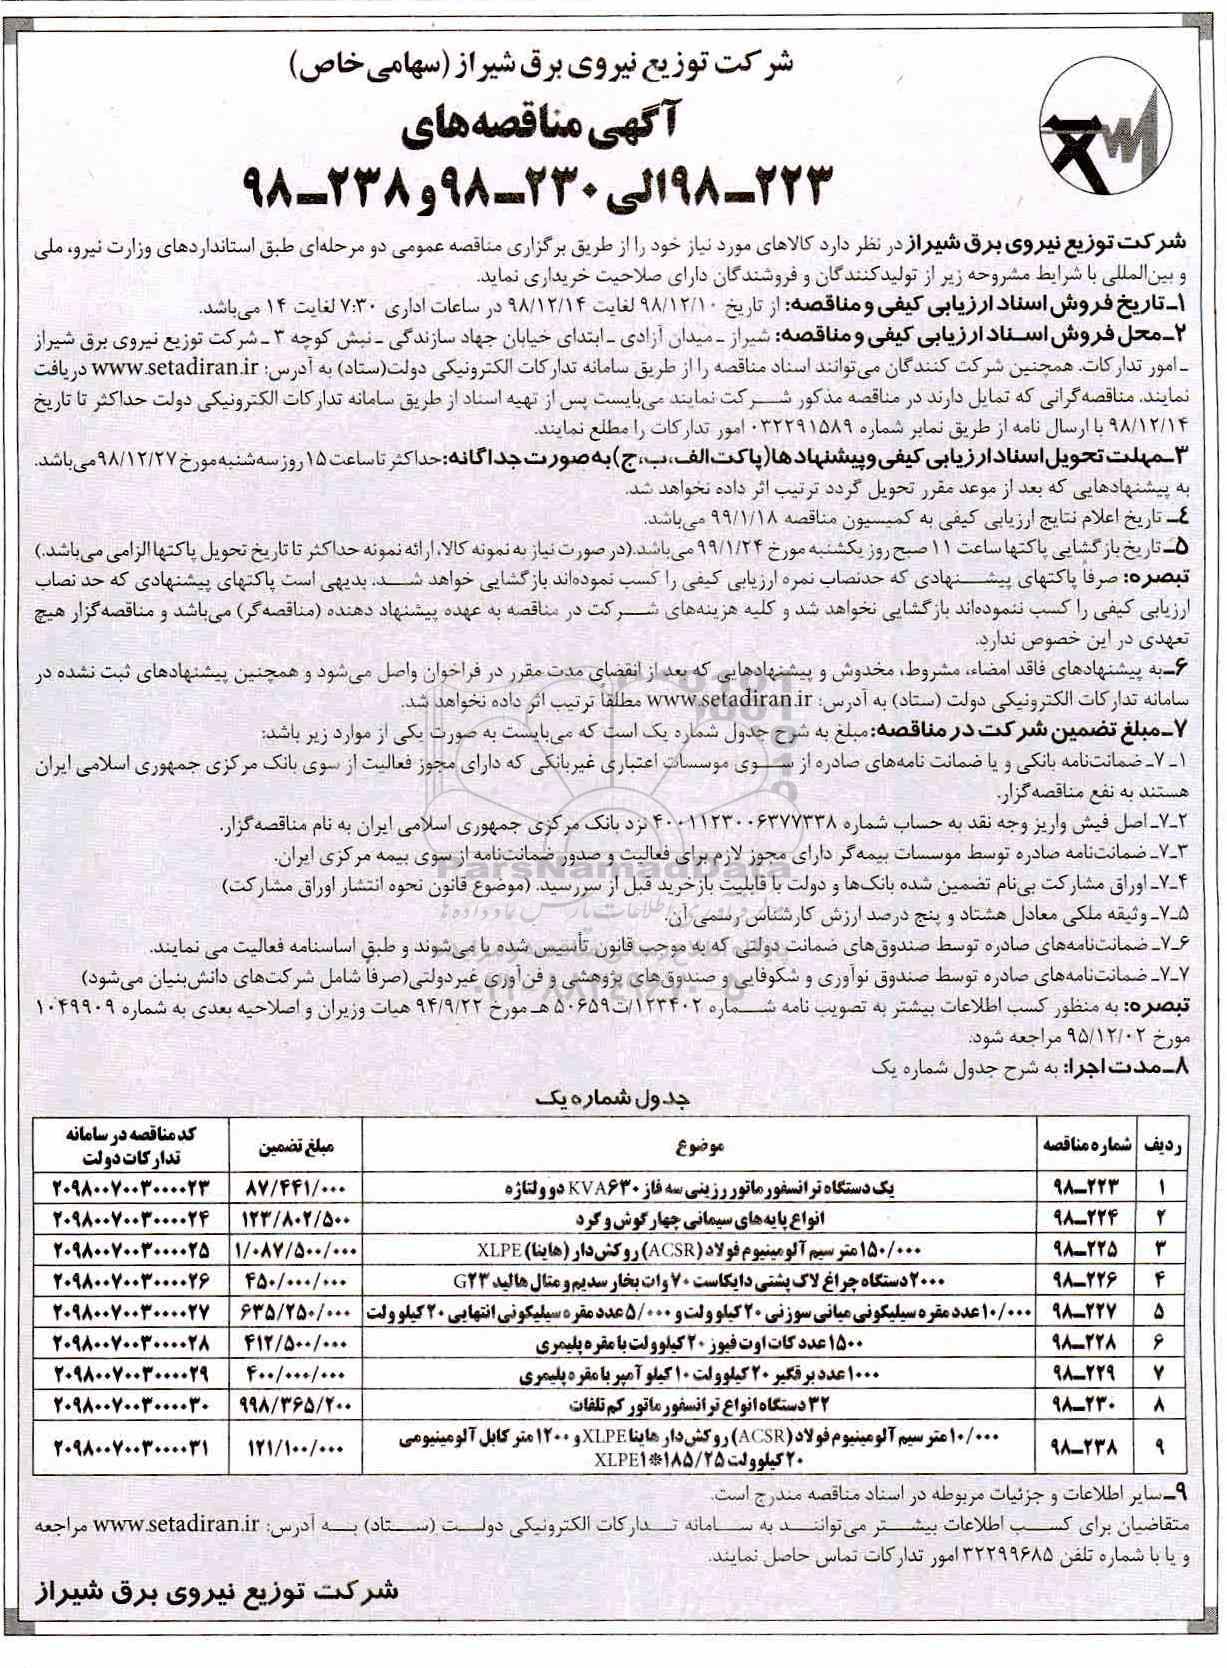 شرکت توزیع نیروی برق شیراز (سهامی خاص)
آگهی مناقصه‌های
۹۸ـ۲۲۳ الی ۹۸ـ۲۳۰ و ۹۸ـ۲۳۸
شرکت توزیع نیروی برق شیراز در نظر دارد کالاهای مورد نیاز خود را از طریق برگزاری مناقصه عمومی دو مرحله‌ای طبق استانداردهای وزارت نیرو، ملی
و بین‌المللی با شرایط مشروحه زیر از تولیدکنندگان و فروشندگان دارای صلاحیت خریداری نماید.
۱ـ تاریخ فروش اسناد ارزیابی کیفی و مناقصه: از تاریخ ۹۸/۱۲/۱۰ لغایت ۹۸/۱۲/۱۴ در ساعات اداری ۷:۳۰ لغایت ۱۴ می‌باشد.
۲ـ محل فروش اسناد ارزیابی کیفی و مناقصه: شیراز ـ میدان آزادی ـ ابتدای خیابان جهاد سازندگی ـ نبش کوچه ۳ ـ شرکت توزیع نیروی برق شیراز
ـ امور تدارکات. همچنین شرکت کنندگان می‌توانند اسناد مناقصه را از طریق سامانه تدارکات الکترونیکی دولت(ستاد) به آدرس: www.setadiran.ir دریافت
نمایند. مناقصه‌گرانی که تمایل دارند در مناقصه مذکور شرکت نمایند می‌بایست پس از تهیه اسناد از طریق سامانه تدارکات الکترونیکی دولت حداکثر تا تاریخ
۹۸/۱۲/۱۴ با ارسال نامه از طریق نمابر شماره ۰۳۲۲۹۱۵۸۹ امور تدارکات را مطلع نمایند.
۳ـ مهلت تحویل اسناد ارزیابی کیفی و پیشنهادها (پاکت الف، ب، ج) به صورت جداگانه: حداکثر تا ساعت ۱۵ روز سه‌شنبه مورخ ۹۸/۱۲/۲۷ می‌باشد.
به پیشنهادهایی که بعد از موعد مقرر تحویل گردد ترتیب اثر داده نخواهد شد.
۴ـ تاریخ اعلام نتایج ارزیابی کیفی به کمیسیون مناقصه ۹۹/۱/۱۸ می‌باشد.
۵ـ تاریخ بازگشایی پاکتها ساعت ۱۱ صبح روز یکشنبه مورخ ۹۹/۱/۲۴ می‌باشد.(در صورت نیاز به نمونه کالا، ارائه نمونه حداکثر تا تاریخ تحویل پاکتها الزامی می‌باشد.)
تبصره: صرفاً پاکتهای پیشنهادی که حدنصاب نمره ارزیابی کیفی را کسب نموده‌اند بازگشایی خواهد شد. بدیهی است پاکتهای پیشنهادی که حد نصاب
ارزیابی کیفی را کسب ننموده‌اند بازگشایی نخواهد شد و کلیه هزینه‌های شرکت در مناقصه به عهده پیشنهاد دهنده (مناقصه‌گر) می‌باشد و مناقصه‌گزار هیچ
تعهدی در این خصوص ندارد.
۶ـ به پیشنهادهای فاقد امضاء، مشروط، مخدوش و پیشنهادهایی که بعد از انقضای مدت مقرر در فراخوان واصل می‌شود و همچنین پیشنهادهای ثبت نشده در
سامانه تدارکات الکترونیکی دولت (ستاد) به آدرس: www.setadiran.ir مطلقاً ترتیب اثر داده نخواهد شد.
۷ـ مبلغ تضمین شرکت در مناقصه: مبلغ به شرح جدول شماره یک است که می‌بایست به صورت یکی از موارد زیر باشد:
۷ـ۱ـ ضمانت‌نامه بانکی و یا ضمانت نامه‌های صادره از سوی موسسات اعتباری غیربانکی که دارای مجوز فعالیت از سوی بانک مرکزی جمهوری اسلامی ایران
هستند به نفع مناقصه‌گزار.
۷ـ۲ـ اصل فیش واریز وجه نقد به حساب شماره ۴۰۰۱۱۲۳۰۰۶۳۷۷۳۳۸ نزد بانک مرکزی جمهوری اسلامی ایران به نام مناقصه‌گزار.
۷ـ۳ـ ضمانت‌نامه صادره توسط موسسات بیمه‌گر دارای مجوز لازم برای فعالیت و صدور ضمانت‌نامه از سوی بیمه مرکزی ایران.
۷ـ۴ـ اوراق مشارکت بی‌نام تضمین شده بانک‌ها و دولت با قابلیت بازخرید قبل از سررسید. (موضوع قانون نحوه انتشار اوراق مشارکت)
۷ـ۵ـ وثیقه ملکی معادل هشتاد و پنج درصد ارزش کارشناس رسمی آن.
۷ـ۶ـ ضمانت‌نامه‌های صادره توسط صندوق‌های ضمانت دولتی که به موجب قانون تأسیس شده یا می‌شوند و طبق اساسنامه فعالیت می نمایند.
۷ـ۷ـ ضمانت‌نامه‌های صادره توسط صندوق نوآوری و شکوفایی و صندوق‌های پژوهشی و فن‌آوری غیردولتی(صرفاً شامل شرکت‌های دانش‌بنیان می‌شود)
تبصره: به منظور کسب اطلاعات بیشتر به تصویب نامه شماره ۱۲۳۴۰۲/ت۵۰۶۵۹ هـ مورخ ۹۴/۹/۲۲ هیات وزیران و اصلاحیه بعدی به شماره ۱۰۴۹۹۰۹
مورخ ۹۵/۱۲/۰۲ مراجعه شود.
۸ـ مدت اجرا: به شرح جدول شماره یک
جدول شماره یک
ردیف شماره مناقصه موضوع مبلغ تضمین کد مناقصه در سامانه تدارکات دولت
۱ ۹۸ـ۲۲۳ یک دستگاه ترانسفورماتور رزینی سه فاز KVA۶۳۰ دو ولتاژه ۸۷/۴۴۱/۰۰۰ ۲۰۹۸۰۰۷۰۰۳۰۰۰۰۲۳
۲ ۹۸ـ۲۲۴ انواع پایه‌های سیمانی چهارگوش و گرد ۱۲۳/۸۰۲/۵۰۰ ۲۰۹۸۰۰۷۰۰۳۰۰۰۰۲۴
۳ ۹۸ـ۲۲۵ ۱۵۰/۰۰۰ متر سیم آلومینیوم فولاد (ACSR) روکش‌دار (هاینا) XLPE ۱/۰۸۷/۵۰۰/۰۰۰ ۲۰۹۸۰۰۷۰۰۳۰۰۰۰۲۵
۴ ۹۸ـ۲۲۶ ۲۰۰۰ دستگاه چراغ لاک پشتی دایکاست ۷۰ وات بخار سدیم و متال هالید G۲۳ ۴۵۰/۰۰۰/۰۰۰ ۲۰۹۸۰۰۷۰۰۳۰۰۰۰۲۶
۵ ۹۸ـ۲۲۷ ۱۰/۰۰۰ عدد مقره سیلیکونی میانی سوزنی ۲۰ کیلو ولت و ۵/۰۰۰ عدد مقره سیلیکونی انتهایی ۲۰ کیلو ولت ۶۳۵/۲۵۰/۰۰۰ ۲۰۹۸۰۰۷۰۰۳۰۰۰۰۲۷
۶ ۹۸ـ۲۲۸ ۱۵۰۰ عدد کات اوت فیوز ۲۰ کیلوولت با مقره پلیمری ۴۱۲/۵۰۰/۰۰۰ ۲۰۹۸۰۰۷۰۰۳۰۰۰۰۲۸
۷ ۹۸ـ۲۲۹ ۱۰۰۰ عدد برقگیر ۲۰ کیلوولت ۱۰ کیلو آمپر با مقره پلیمری ۴۰۰/۰۰۰/۰۰۰ ۲۰۹۸۰۰۷۰۰۳۰۰۰۰۲۹
۸ ۹۸ـ۲۳۰ ۳۲ دستگاه انواع ترانسفورماتور کم تلفات ۹۹۸/۳۶۵/۲۰۰ ۲۰۹۸۰۰۷۰۰۳۰۰۰۰۳۰
۹ ۹۸ـ۲۳۸ ۱۰/۰۰۰ متر سیم آلومینیوم فولاد (ACSR) روکش‌دار هاینا XLPE و ۱۲۰۰ متر کابل آلومینیومی ۱۲۱/۱۰۰/۰۰۰ ۲۰۹۸۰۰۷۰۰۳۰۰۰۰۳۱
۲۰ کیلوولت ۱۸۵/۲۵*۱XLPE
۹ـ سایر اطلاعات و جزئیات مربوطه در اسناد مناقصه مندرج است.
متقاضیان برای کسب اطلاعات بیشتر می‌توانند به سامانه تدارکات الکترونیکی دولت (ستاد) به آدرس: www.setadiran.ir مراجعه
و یا با شماره تلفن ۳۲۲۹۹۶۸۵ امور تدارکات تماس حاصل نمایند.
شرکت توزیع نیروی برق شیراز
ParsNamadData